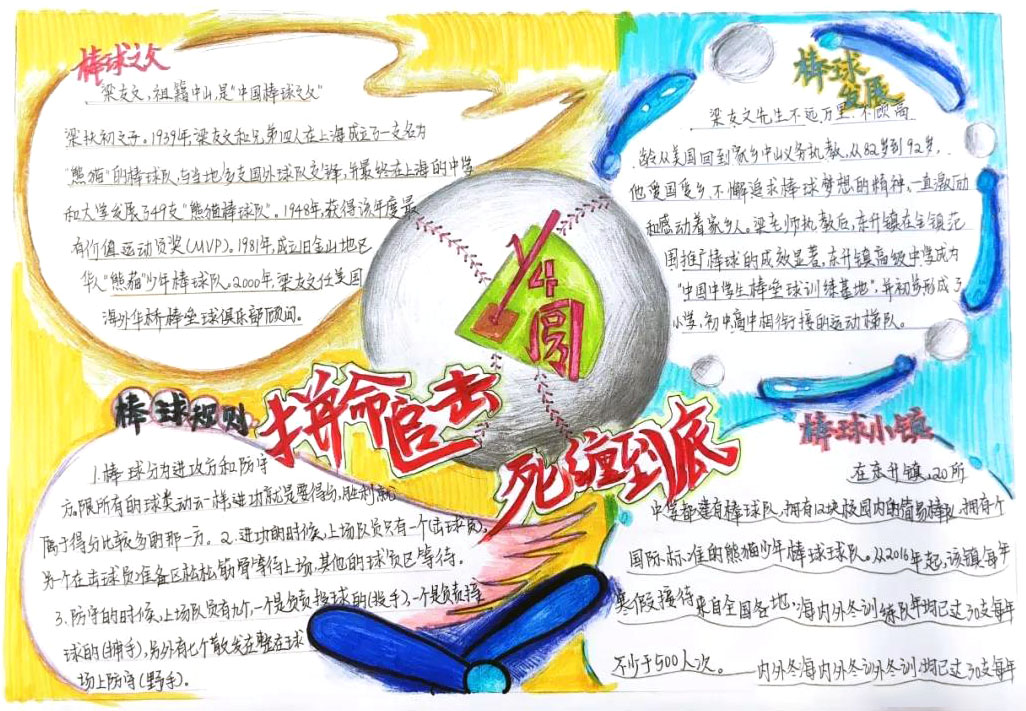 棒球之父
梁友文,祖籍中山,是"中国棒球之父"
梁扶初之子。1939年,梁友文和兄弟四人在上海成立了一支名为
"熊猫"的棒球队,与当地多支国外球队交锋,并最终在上海的中学
和大学发展了49支"熊猫棒球队"。1948年,获得该年度最
有价值运动员奖(MVP)。1981年,成立旧金山地区
华人"熊猫"少年棒球队。2000年,梁友文任美国
海外华桥棒垒球俱乐部顾问。
棒球发展
梁友文先生不远万里、不顾高
龄从美国回到家乡中山义务执教,从82岁到92岁,
他爱国爱乡、不懈追求棒球梦想的精神,一直激励
和感动着家乡人。梁老师执教后,东升镇在全镇范
围推广棒球的成效显著,东升镇高级中学成为
"中国中学生棒垒球训练基地",并初步形成了
小学,初中,高中相衔接的运动梯队。
1/4圆
拼命追击
死缠到底
棒球规则
1.棒球分为进攻方和防守
方。跟所有的球类动云一样进功就是要得分,胜利就
属于得分比较多的那一方。2.进功的时候,上场队员只有一个(击球员),
另一个在击球员准备区松松筋骨等待上场,其他的球员区等待。
3.防守的时候,上场队员有九个,一个是负责投球的(投手),一个是负责接
球的(捕手),另外有七个散发在整在球
场上防守(野手)。
棒球小镇
在东升镇,20所
中学都建有棒球队,拥有12块校园内的简易棒队,拥有个
国际标准的熊猫少年棒球球队。从2016年起,该镇每年
寒假接待来自全国各地,海内外冬训练队年均已过30支每年
不少于500人次。内外冬海内外冬训外冬训,均已过30支每年